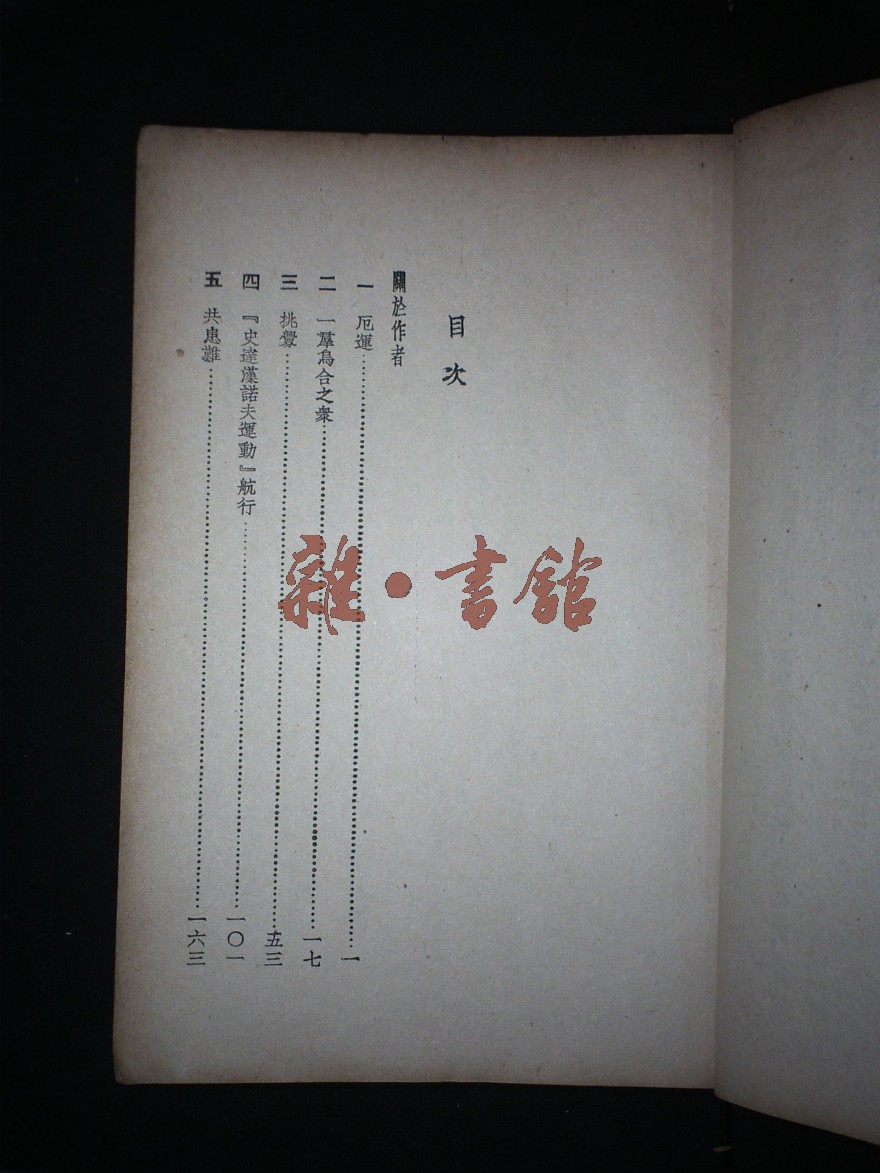 目次
關於作者
一 厄運……一
二 一羣烏合之衆……一七
三 挑釁……五三
四 『史達漢諾夫運動』航行……一〇一
五 共患難……一六三
雜·書館